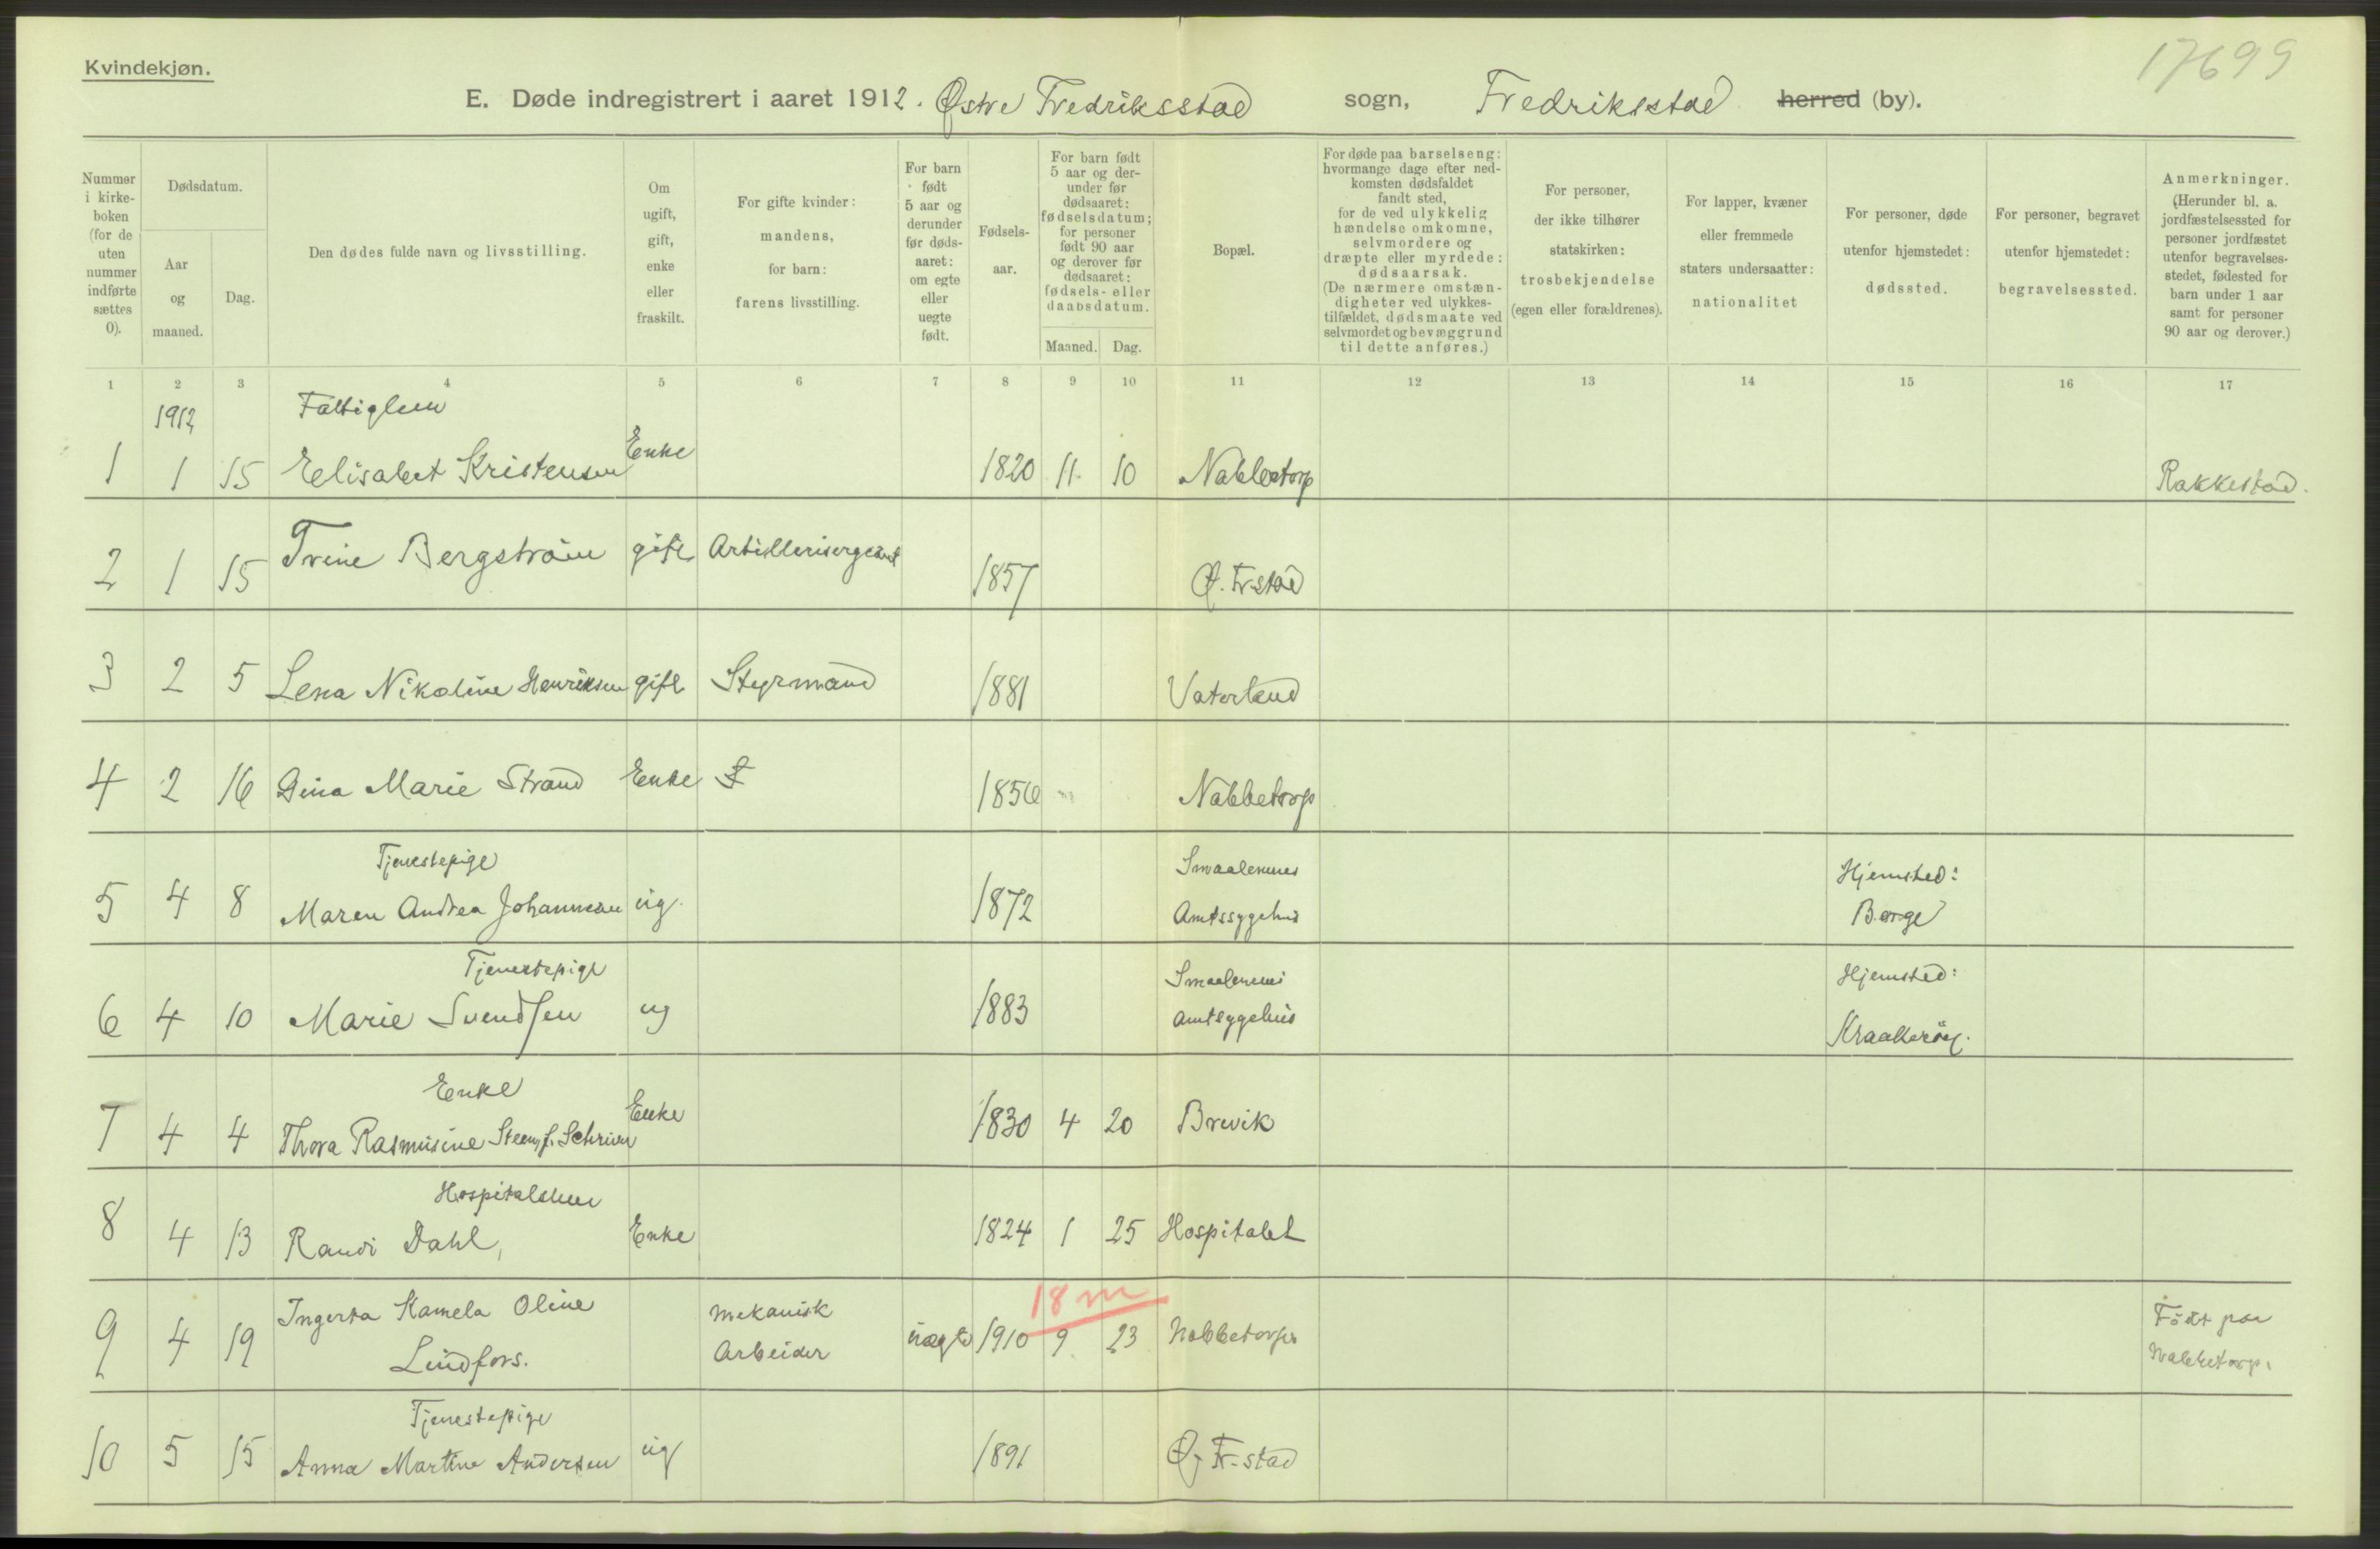 Kvindekjøn.
17699
E. Døde indregistrert i aaret 1912. Østre Fredriksstad sogn, Fredrikstad herred (by).
Nummer i kirke-boken (for de uten nummer indførte sættes 0).
Dødsdatum.
Aar og maaned.
Dag.
Den dødes fulde navn og livsstilling.
Om ugift, gift, enke eller fraskilt.
For gifte kvinder: mandens, for barn: farens livsstilling.
For barn født 5 aar og derunder før døds-aaret: om egte eller uegte født.
Fødsels-aar.
For barn født 5 aar og der-under før dødsaaret: fødselsdatum; for personer født 90 aar og derover før dødsaaret: fødsels- eller daabsdatum.
Maaned. Dag.
Bopæl.
For døde paa barselseng: hvormange dage efter ned-komsten dødsfaldet fandt sted, for de ved ulykkelig hændelse omkomne, selvmordere og dræpte eller myrdede: dødsaarsak. (De nærmere omstæn-digheter ved ulykkes-tilfældet, dødsmaate ved selvmordet og bevæggrund til dette anføres.)
For personer, der ikke tilhører statskirken: trosbekjendelse (egen eller forældrenes).
For lapper, kvæner eller fremmede staters undersaatter: nationalitet
For personer, døde utenfor hjemstedet: dødssted.
For personer, begravet utenfor hjemstedet: begravelsessted.
Anmerkninger. (Herunder bl. a. jordfæstelsessted for personer jordfæstet utenfor begravelses-stedet, fødested for barn under 1 aar samt for personer 90 aar og derover.)
1 2 3 4 5 6 7 8 9 10 11 12 13 14 15 16 17
1912 Fattiglem
1 1 15 Elisabet Kristensen Enke 1820 11. 10 Nabbetorp Rakkestad.
2 1 15 Trine Bergström gift Artillerisergeant 1857 Ø. Fr.stad
3 2 5 Lena Nikoline Henriksen gift Styrmand 1881 Vaterland
4 2 16 Gina Marie Strand Enke 1856 Nabbetorp
Tjenestepige Smaalenenes Hjemsted:
5 4 8 Maren Andrea Johannesen ug. 1872 Amtssygehus Borge
Tjenestepige Smaalenenes Hjemsted:
6 4 10 Marie Svendsen ug 1883 Amtsygehus Kraakerøy.
Enke
7 4 4 Thora Rasmusine Steen, f. Schriver Enke 1830 4 20 Brevik
Hospitalslem
8 4 13 Randi Dahl, Enke 1824 1 25 Hospitalet
18 m
Ingerta Kamela Oline mekanisk Födt paa
9 4 19 Lindfors. Arbeider uægte 1910 9 23 Nabbetorp. Nabbetorp.
Tjenestepige
10 5 15 Anna Martine Andersen ug 1891 Ø. Fr.stad